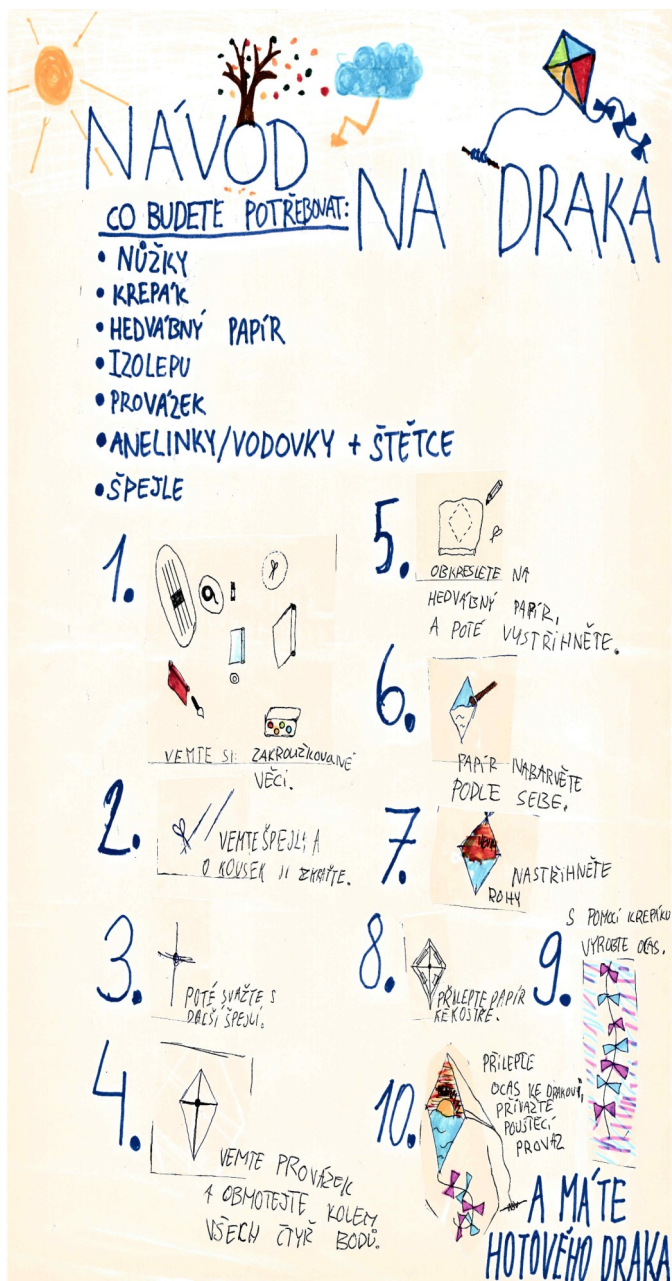 NÁVOD NA DRAKA
CO BUDETE POTŘEBOVAT:
• NŮŽKY
• KREPÁK
• HEDVÁBNÝ PAPÍR
• IZOLEPU
• PROVÁZEK
• ANELINKY/VODOVKY + ŠTĚTCE
• ŠPEJLE
1.
VEMTE SI ZAKROUŽKOVANÉ
VĚCI.
2.
VEMTE ŠPEJLI A
O KOUSEK JI ZKRAŤTE.
3.
POTÉ SVAŽTE S
DALŠÍ ŠPEJLÍ.
4.
VEMTE PROVÁZEK
A OBMOTEJTE KOLEM
VŠECH ČTYŘ BODŮ.
5.
OBKRESLETE NA
HEDVÁBNÝ PAPÍR,
A POTÉ VYSTŘIHNĚTE.
6.
PAPÍR NABARVĚTE
PODLE SEBE.
7.
NASTŘIHNĚTE
ROHY
8.
PŘILEPTE PAPÍR
KE KOSTŘE.
9.
S POMOCÍ KREPÁKU
VYROBTE OCAS.
10.
PŘILEPTE
OCAS KE DRAKOVI,
PŘIVAŽTE
POUŠTĚCÍ
PROVAZ
A MÁTE
HOTOVÉHO DRAKA